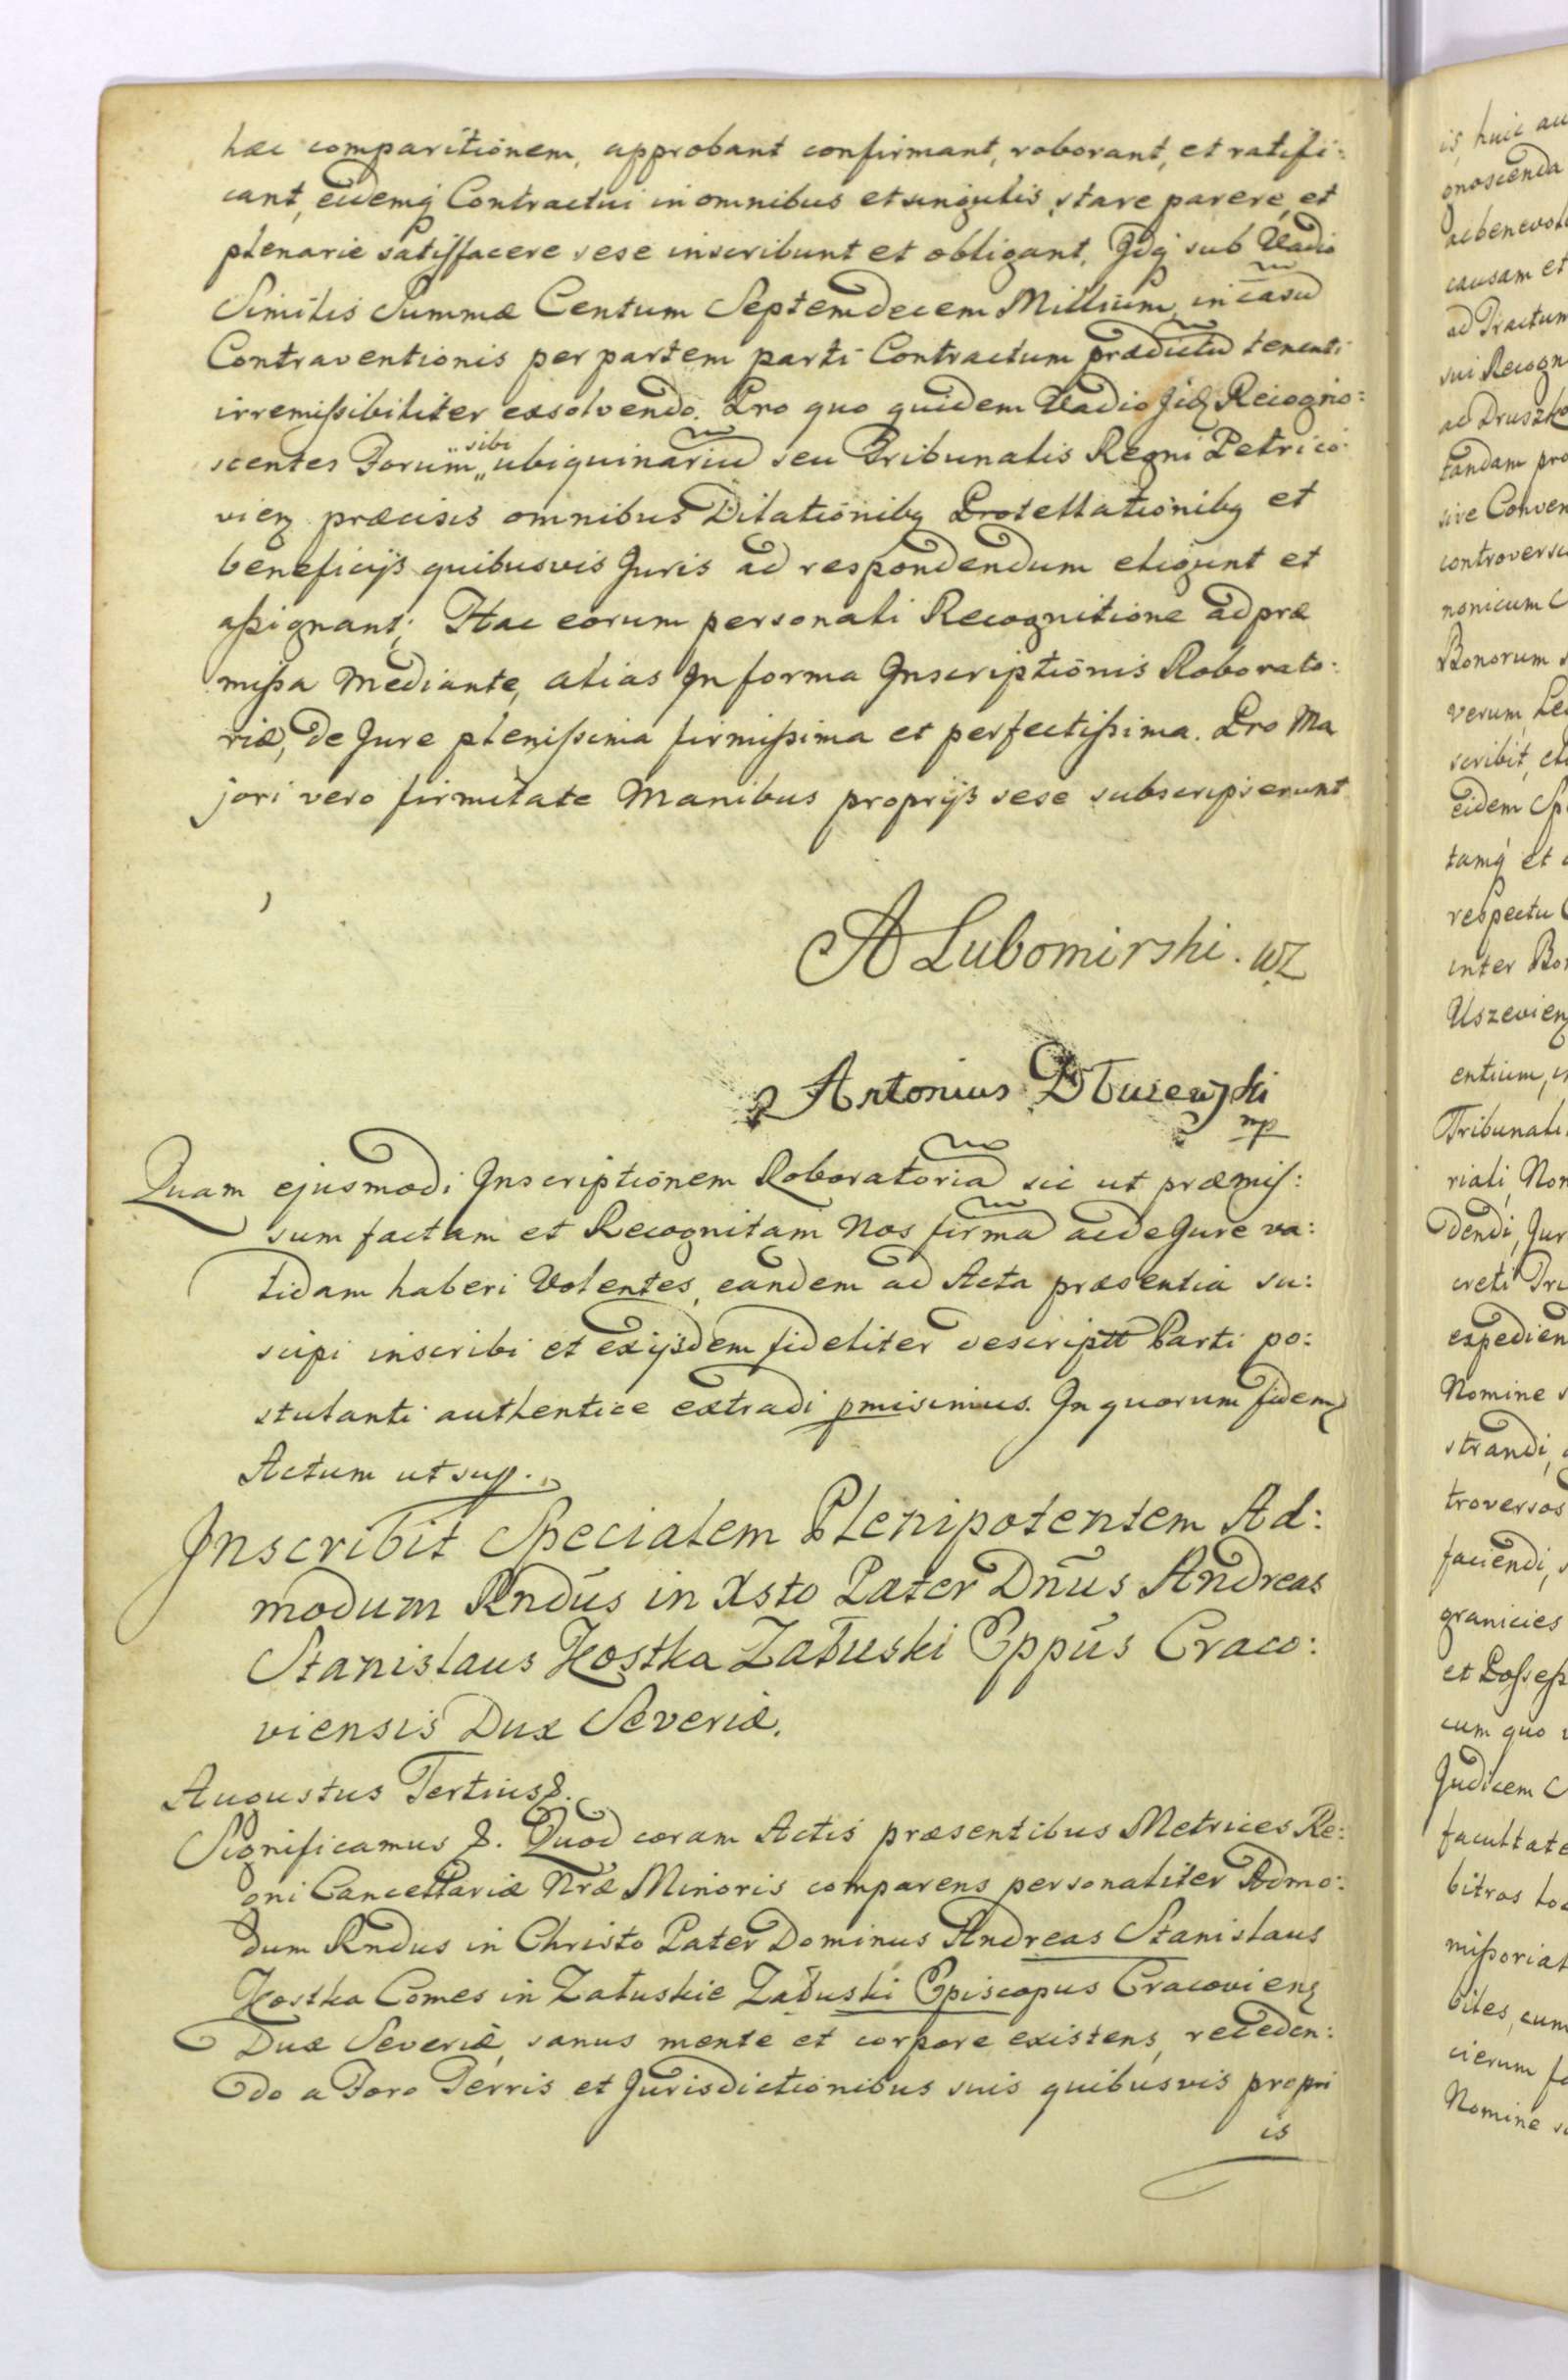 hac comparitionem, approbant confirmant, roborant, et ratifi:
cant, eidemq Contractui in omnibus et singulis stare parere, et
plenarie satisfacere sese inscribunt et obligant. Idq sub Vadio
Similis Summæ Centum Septemdecem Millium, in casu
Contraventionis per partem parti Contractum prædictu tenenti
irremissibiliter exsolvendo. Pro quo quidem Vadio Jid Recogno:
scentes Forum „sibi„ ubiquinariu seu Tribunalis Regni Petrico:
vien præcisis omnibus Dilationibq Protellationibq et
beneficijs quibusvis Juris ad respondendum eligunt et
assignant; Hac eorum personali Recognitione ad præ
missa mediante, alias In forma Inscriptionis Roborato:
riæ, de Jure plenissima firmissima et perfectissima. Pro Ma
jori vero firmitate Manibus proprijs sese subscripserunt
A Lubomirski. WZ
Antonius Dłuzewski
mp
Quam ejusmodi Inscriptionem Roboratoria sic ut præmis:
sum factam et Recognitam Nos firma ac de Jure va:
lidam haberi Volentes, eandem ad Acta præsentia su:
scipi inscribi et exijsdem fideliter descriptt Parti po:
stulanti authentice extradi pmisimus. In quorum fidem
Actum ut sup.
Inscribit Specialem Plenipotentem Ad:
modum Rndus in Xsto Pater Dnus Andreas
Stanislaus Kostka Załuski Eppus Craco:
viensis Dux Severiæ.
Augustus Tertius &.
Significamus &. Quod coram Actis præsentibus Metrices Re:
gni Cancellariæ Nræ Minoris comparens personaliter Admo:
dum Rndus in Christo Pater Dominus Andreas Stanislaus
Kostka Comes in Załuskie Załuski Episcopus Cracovien
Dux Severiæ, sanus mente et corpore existens, receden:
do a Foro Terris et Jurisdictionibus suis quibusvis propri
is
is, huic
gnoscenda
ac benevol
causam et
ad Tractum
sui Recogn
ac Druszko
tandam pro
sive Conven
controversi
nonicum C
Bonorum
verum,
scribit,
eidem Sp
tamq et
respectu
inter Bo
Uszevien
entium,
Tribunali
riali, Non
dendi, Jur
creti Tri
expedien
Nomine s
strandi,
troversos
faciendi,
granicies
et Possess
cum quo
Judicem C
facultate
bitros
missorial
biles, cum
Nomine